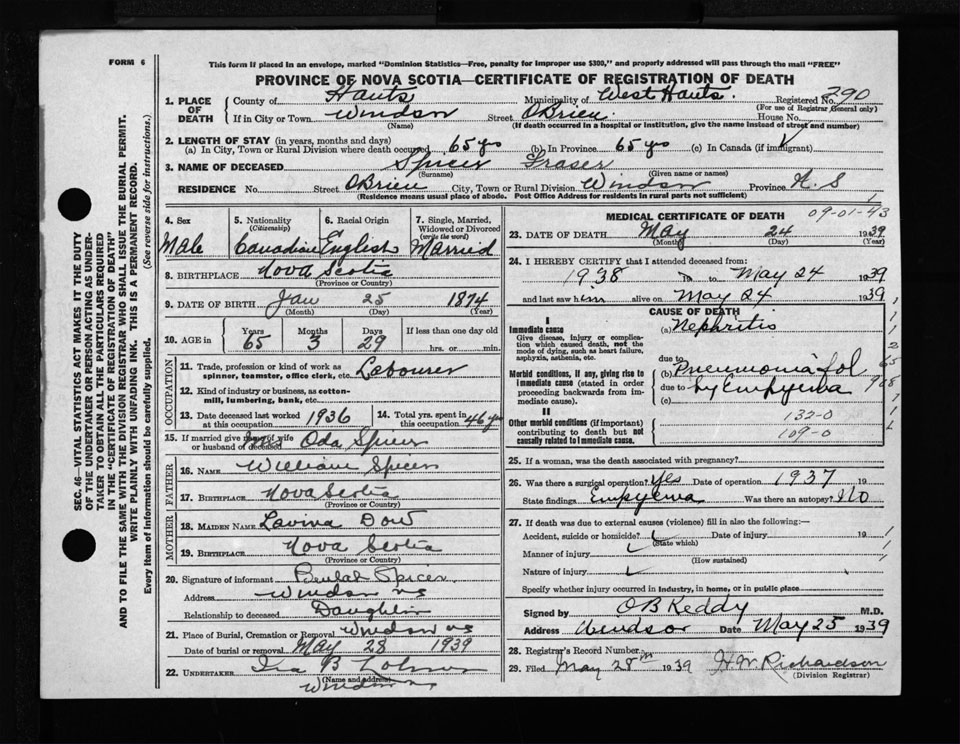 FORM 6
This form if placed in an envelope, marked "Dominion Statistics—Free, penalty for improper use $300," and properly addressed will pass through the mail "FREE"
PROVINCE OF NOVA SCOTIA—CERTIFICATE OF REGISTRATION OF DEATH
1. PLACE OF DEATH County of Hants Municipality of West Hants. Registered No. 290
(For use of Registrar General only)
If in City or Town Windsor Street OBrien House No.
(Name) (If death occurred in a hospital or institution, give the name instead of street and number)
2. LENGTH OF STAY (in years, months and days)
(a) In City, Town or Rural Division where death occurred 65 yrs (b) In Province 65 yrs (c) In Canada (if immigrant)
3. NAME OF DECEASED Spicer Fraser
(Surname) (Given name or names)
RESIDENCE No. Street OBrien City, Town or Rural Division Windsor Province N.S
(Residence means usual place of abode. Post Office Address for residents in rural parts not sufficient)
4. Sex 5. Nationality (Citizenship) 6. Racial Origin 7. Single, Married, Widowed or Divorced (write the word)
Male Canadian English Married
8. BIRTHPLACE Nova Scotia
(Province or Country)
9. DATE OF BIRTH Jan 25 1874
(Month) (Day) (Year)
10. AGE in Years Months Days If less than one day old
65 3 29 hrs. or min.
OCCUPATION
11. Trade, profession or kind of work as spinner, teamster, office clerk, etc. Labourer
12. Kind of industry or business, as cotton-mill, lumbering, bank, etc.
13. Date deceased last worked at this occupation 1936 14. Total yrs. spent in this occupation 46 yr
15. If married give name of wife or husband of deceased Mrs Oda Spicer
FATHER
16. NAME William Spicer
17. BIRTHPLACE Nova Scotia
(Province or Country)
MOTHER
18. MAIDEN NAME Lavina Dow
19. BIRTHPLACE Nova Scotia
(Province or Country)
20. Signature of informant Beulah Spicer
Address Windsor NS
Relationship to deceased Daughter
21. Place of Burial, Cremation or Removal Windsor NS
Date of burial or removal May 28 1939
22. UNDERTAKER Ira B
(Name and address)
Windsor NS
MEDICAL CERTIFICATE OF DEATH 09-01-43
23. DATE OF DEATH May 24 1939
(Month) (Day) (Year)
24. I HEREBY CERTIFY that I attended deceased from:
1938 to May 24 1939
and last saw him alive on May 24 1939
CAUSE OF DEATH
I
Immediate cause (a) Nephritis
Give disease, injury or complication which caused death, not the mode of dying, such as heart failure, asphyxia, asthenia, etc.
due to
Morbid conditions, if any, giving rise to immediate cause (stated in order proceeding backwards from immediate cause). (b) Pneumonia fol
due to by Empyema
(c)
II
Other morbid conditions (if important) contributing to death but not causally related to immediate cause. 132-0
109-0
25. If a woman, was the death associated with pregnancy?
26. Was there a surgical operation? Yes Date of operation 1937 19
State findings Empyema Was there an autopsy? No
27. If death was due to external causes (violence) fill in also the following:—
Accident, suicide or homicide? Date of injury 19
(State which)
Manner of injury
(How sustained)
Nature of injury
Specify whether injury occurred in industry, in home, or in public place
Signed by OB Keddy M.D.
Address Windsor Date May 25 1939
28. Registrar's Record Number
29. Filed May 28th 1939 H.W. Richardson
(Division Registrar)
SEC. 46—VITAL STATISTICS ACT MAKES IT THE DUTY
OF THE UNDERTAKER OR PERSON ACTING AS UNDER-
TAKER TO OBTAIN ALL THE PARTICULARS REQUIRED
IN THE "CERTIFICATE OF REGISTRATION OF DEATH"
AND TO FILE THE SAME WITH THE DIVISION REGISTRAR WHO SHALL ISSUE THE BURIAL PERMIT.
WRITE PLAINLY WITH UNFADING INK. THIS IS A PERMANENT RECORD.
Every item of information should be carefully supplied. (See reverse side for instructions.)